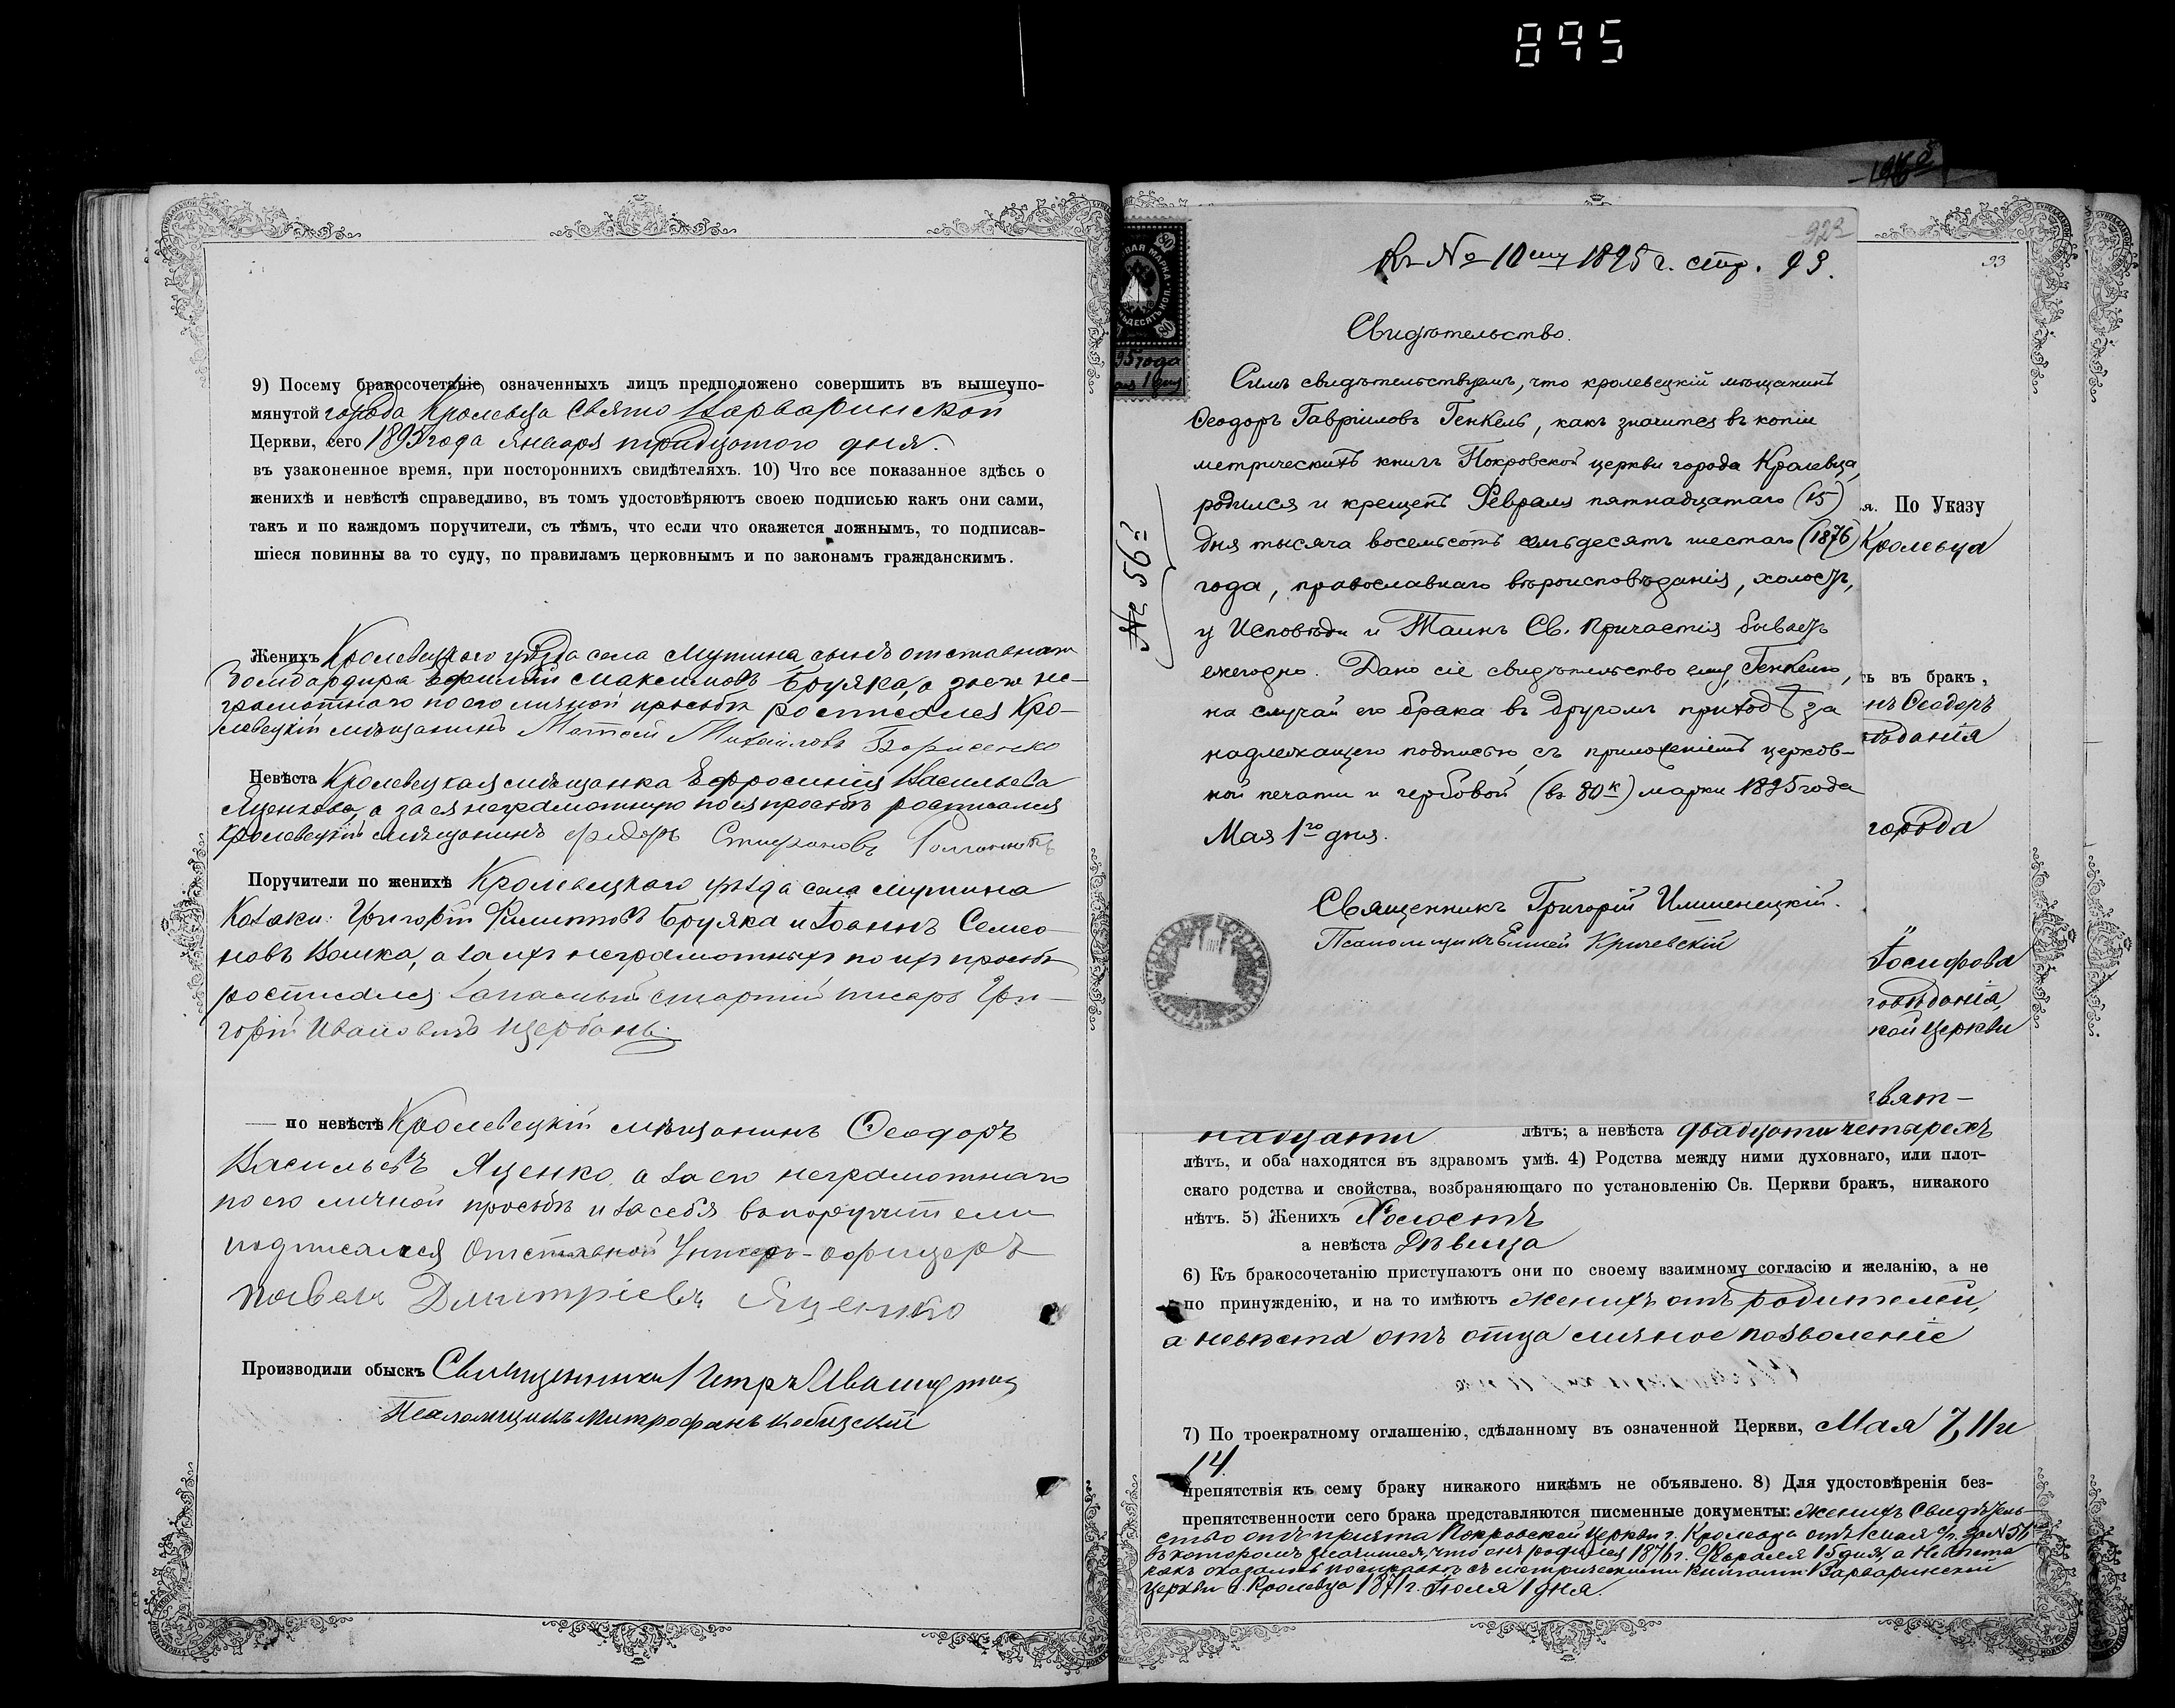 895
9) Посему бракосочетаніе означенныхъ лицъ предположено совершить въ вышеупо-
мянутой города Кролевца Свято Варваринской
Церкви, сего 1895 года Января тридцатого дня.
въ узаконенное время, при постороннихъ свидѣтеляхъ. 10) Что все показанное здѣсь о
женихѣ и невѣстѣ справедливо, въ томъ удостовѣряютъ своею подписью какъ они сами,
такъ и по каждомъ поручители, съ тѣмъ, что если что окажется ложнымъ, то подписав-
шіеся повинны за то суду, по правиламъ церковнымъ и по законамъ гражданскимъ.
Женихъ Кролевецкого уѣзда села Мутина сынъ отставнаго
бомбардира Максимовъ Бруяка, а за его не-
грамотнаго по его личной просьбѣ росписался Кро-
левецкій мѣщанинъ Матвей Михайловъ Борисенко
Невѣста Кролевецкая мѣщанка Ефросинія Васильева
Яценкова, а за ея неграмотную по ея просьбѣ росписался
Кролевецкій мѣщанинъ Федоръ Стефановъ
Поручители по женихѣ Кролевецкого уѣзда села Мутина
Козаки: Григорій Филиповъ Бруяка и Іоаннъ Семео-
новъ Вошка, а за ихъ неграмотныхъ по их просьбѣ
росписался запасный старшій писарь Гри-
горій Ивановичъ Щербань.
— по невѣстѣ Кролевецкій мѣщанинъ Ѳеодоръ
Васильевъ Яценко, а за его неграмотнаго
по его личной просьбѣ и за себя въ поручители
подписался Отставной Унтеръ-офицеръ
Павелъ Дмитріевъ Яценко
Производили обыскъ Священникъ Петръ
Псаломщикъ Митрофанъ Кобизскій
922
Къ № 10му 1895 г. стр. 93.
95 года
Свидѣтельство.
Симъ свидѣтельствуемъ, что кролевецкій мѣщанинъ
Ѳеодоръ Гавріиловъ Генкель, какъ значится въ копіи
метрическихъ книгъ Покровской церкви города Кролевца,
родился и крещенъ Февраля пятнадцатаго (15)
дня тысяча восемьсотъ семьдесятъ шестаго (1876)
года, православнаго вѣроисповѣданія, холостъ,
у Исповѣди и Таинъ Св. Причастія бываетъ
ежегодно. Дано сіе свидѣтельство ему, Генкелю,
на случай его брака въ другомъ приходѣ за
надлежащею подписью, съ приложеніемъ церков-
ной печати и гербовой (въ 80 к) марки 1895 года
Мая 1го дня.
№ 56й
Священникъ Григорій Илшенецкій.
Псаломщикъ Кричевскій
93
я. По Указу
Кролевца
ть въ бракъ,
нъ Ѳеодоръ
ѣданія
города
Іосифова
повѣданія,
кой Церкви
евят-
надцати лѣтъ; а невѣста двадцати четырехъ
лѣтъ, и оба находятся въ здравомъ умѣ. 4) Родства между ними духовнаго, или плот-
скаго родства и свойства, возбраняющаго по установленію Св. Церкви бракъ, никакого
нѣтъ. 5) Женихъ Холостъ
а невѣста Дѣвица
6) Къ бракосочетанію приступаютъ они по своему взаимному согласію и желанію, а не
по принужденію, и на то имѣютъ женихъ отъ родителей,
а невѣста отъ отца личное позволеніе
7) По троекратному оглашенію, сдѣланному въ означенной Церкви, Мая 7, 11 и
14.
препятствія къ сему браку никакого никѣмъ не объявлено. 8) Для удостовѣренія без-
препятственности сего брака представляются писменные документы: женихъ Свидѣтель-
ство отъ причта Покровской Церкви г. Кролевца отъ 1 мая с/г. за № 56
въ которомъ значится, что онъ родился 1876 г. Февраля 15 дня, а невѣста
какъ оказалось по справкѣ съ метрическими книгами Варваринской
Церкви г. Кролевца 1871 г. Іюля 1 дня.